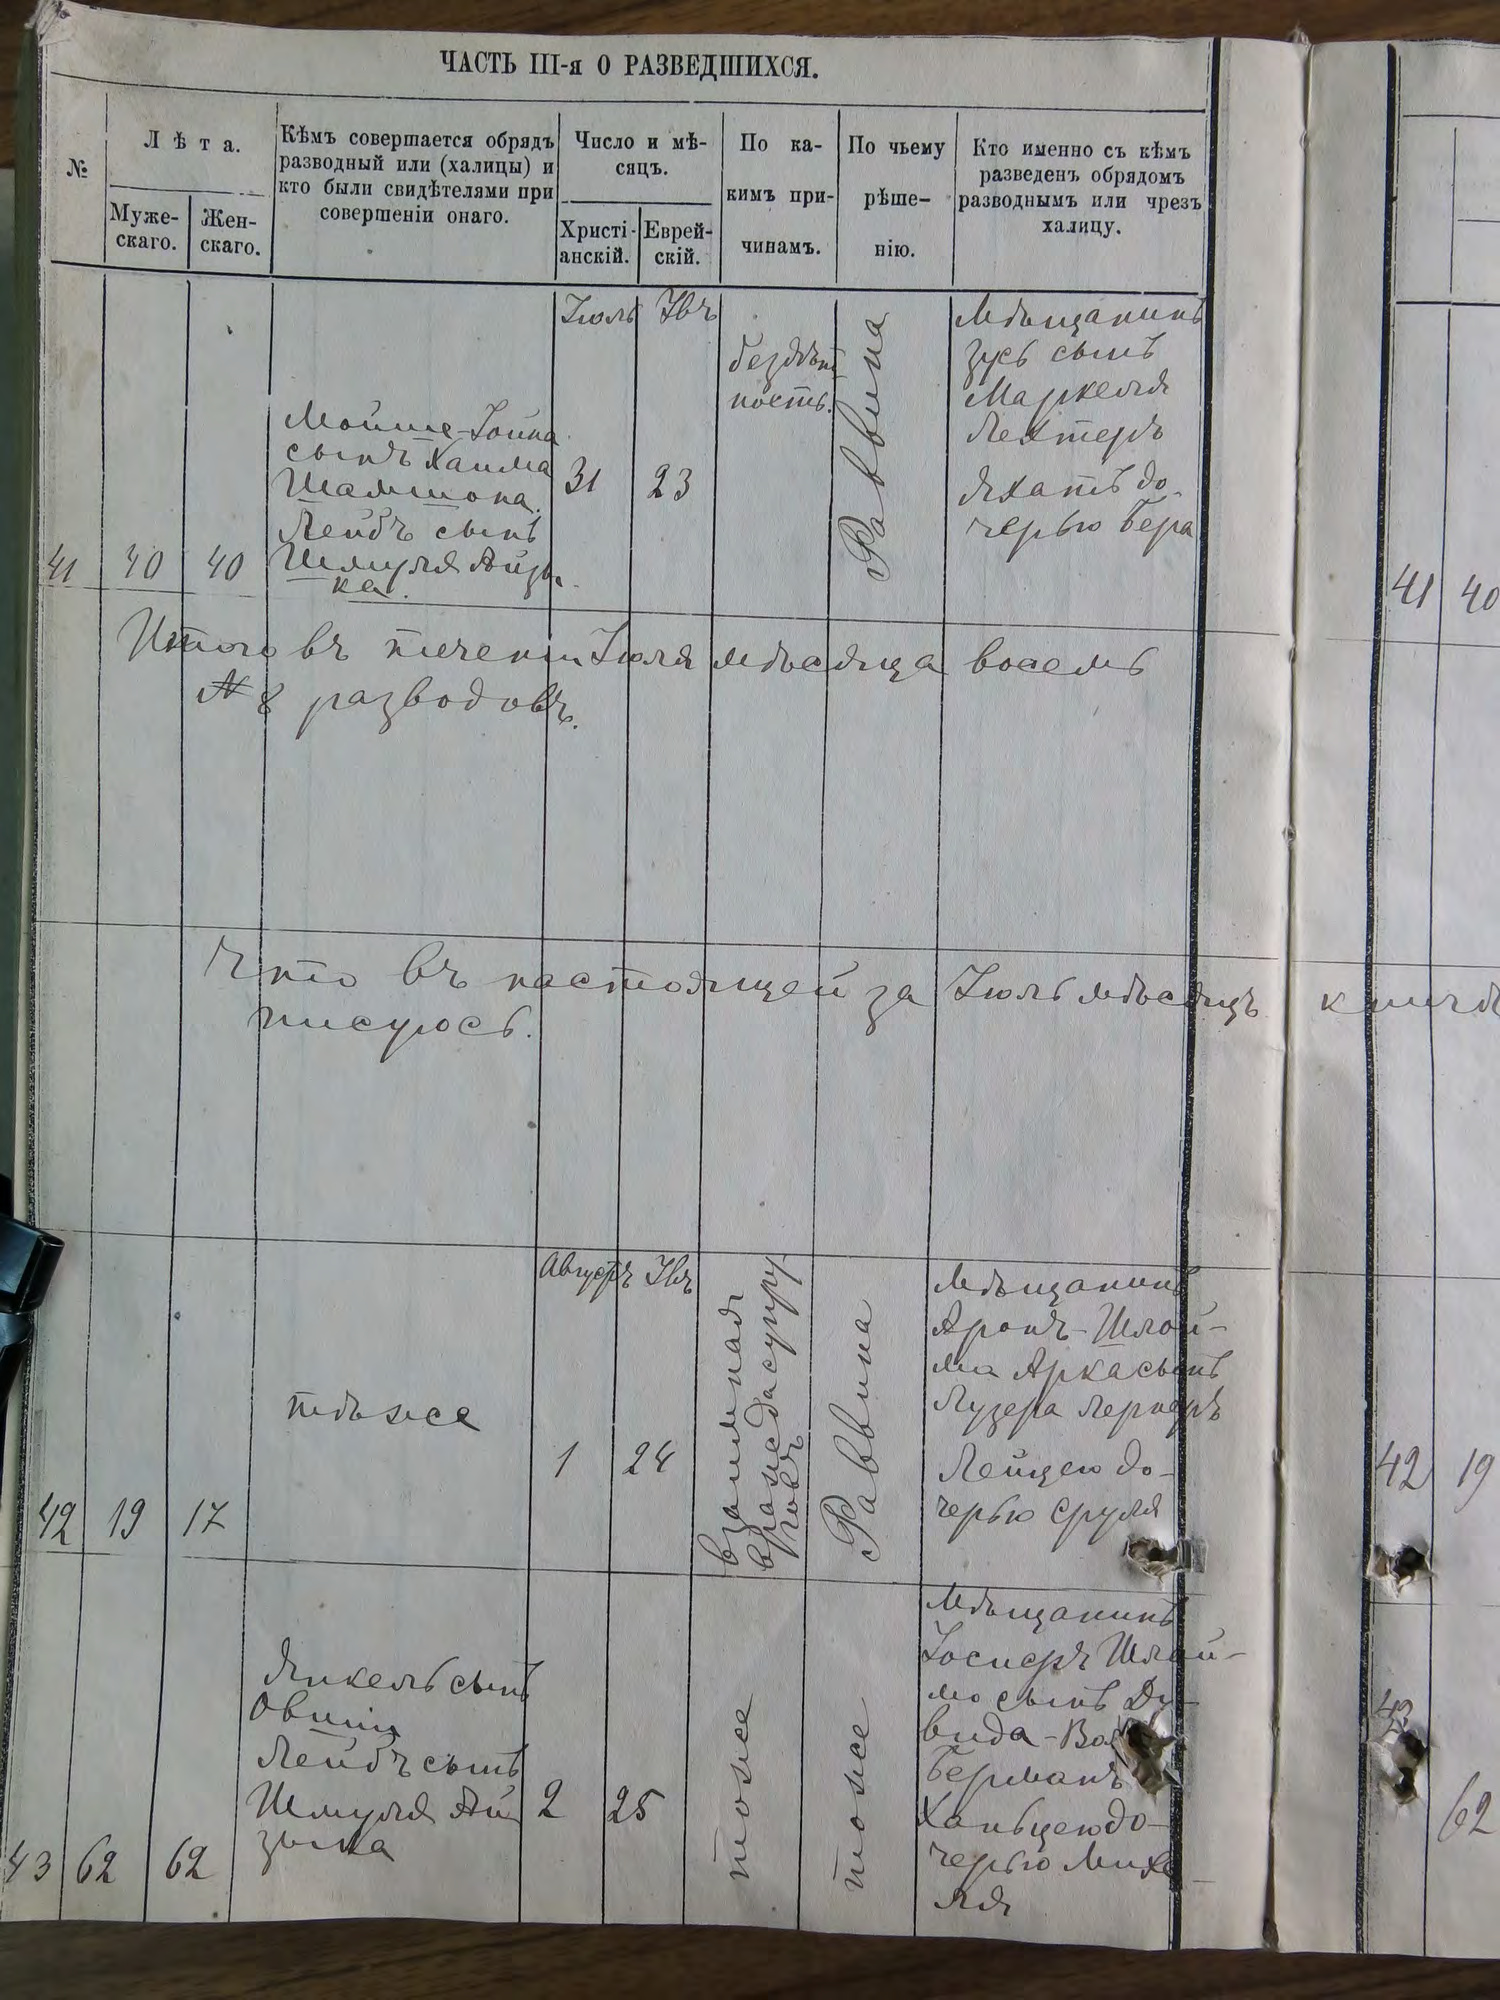 ЧАСТЬ III-я О РАЗВЕДШИХСЯ.
№
Лѣта.
Муже-
скаго.
Жен-
скаго.
Кѣмъ совершается обрядъ
разводный или (халицы) и
кто были свидѣтелями при
совершеніи онаго.
Число и мѣ-
сяцъ.
Христі-
анскій.
Еврей-
скій.
По ка-
кимъ при-
чинамъ.
По чьему
рѣше-
нію.
Кто именно съ кѣмъ
разведенъ обрядомъ
разводнымъ или чрезъ
халицу.
41
40
40
Мойше-Іойна
сынъ Хаима
Шамшона.
Лейбъ сынъ
Шмуля Айзы-
ка.
Іюль
31
Увъ
23
бездѣт-
ность.
Раввина
Мѣщанинъ
Зусь сынъ
Маркеля
Лехтеръ
Яхатъ до-
черью Бера
41
40
Итого въ теченіи Іюля мѣсяца восемь
№ 8 разводовъ.
Что въ настоящей за Іюль мѣсяцъ
писуюсь.
42
19
17
тѣже
Августъ
1
Увъ
24
взаимная
вражда супру
говъ
Раввина
Мѣщанинъ
Аронъ-Шлой-
ма Арка сынъ
Лузера Лернеръ
Лейцею до-
черью Сруля
42
19
43
62
62
Янкель сынъ
Овшии
Лейбъ сынъ
Шмуля Ай
зыка
2
25
тоже
тоже
Мѣщанинъ
Іосифъ Шлой-
мо сынъ Ду-
вида-
Берманъ
Ханьцею до-
черью Миха-
ля
43
62